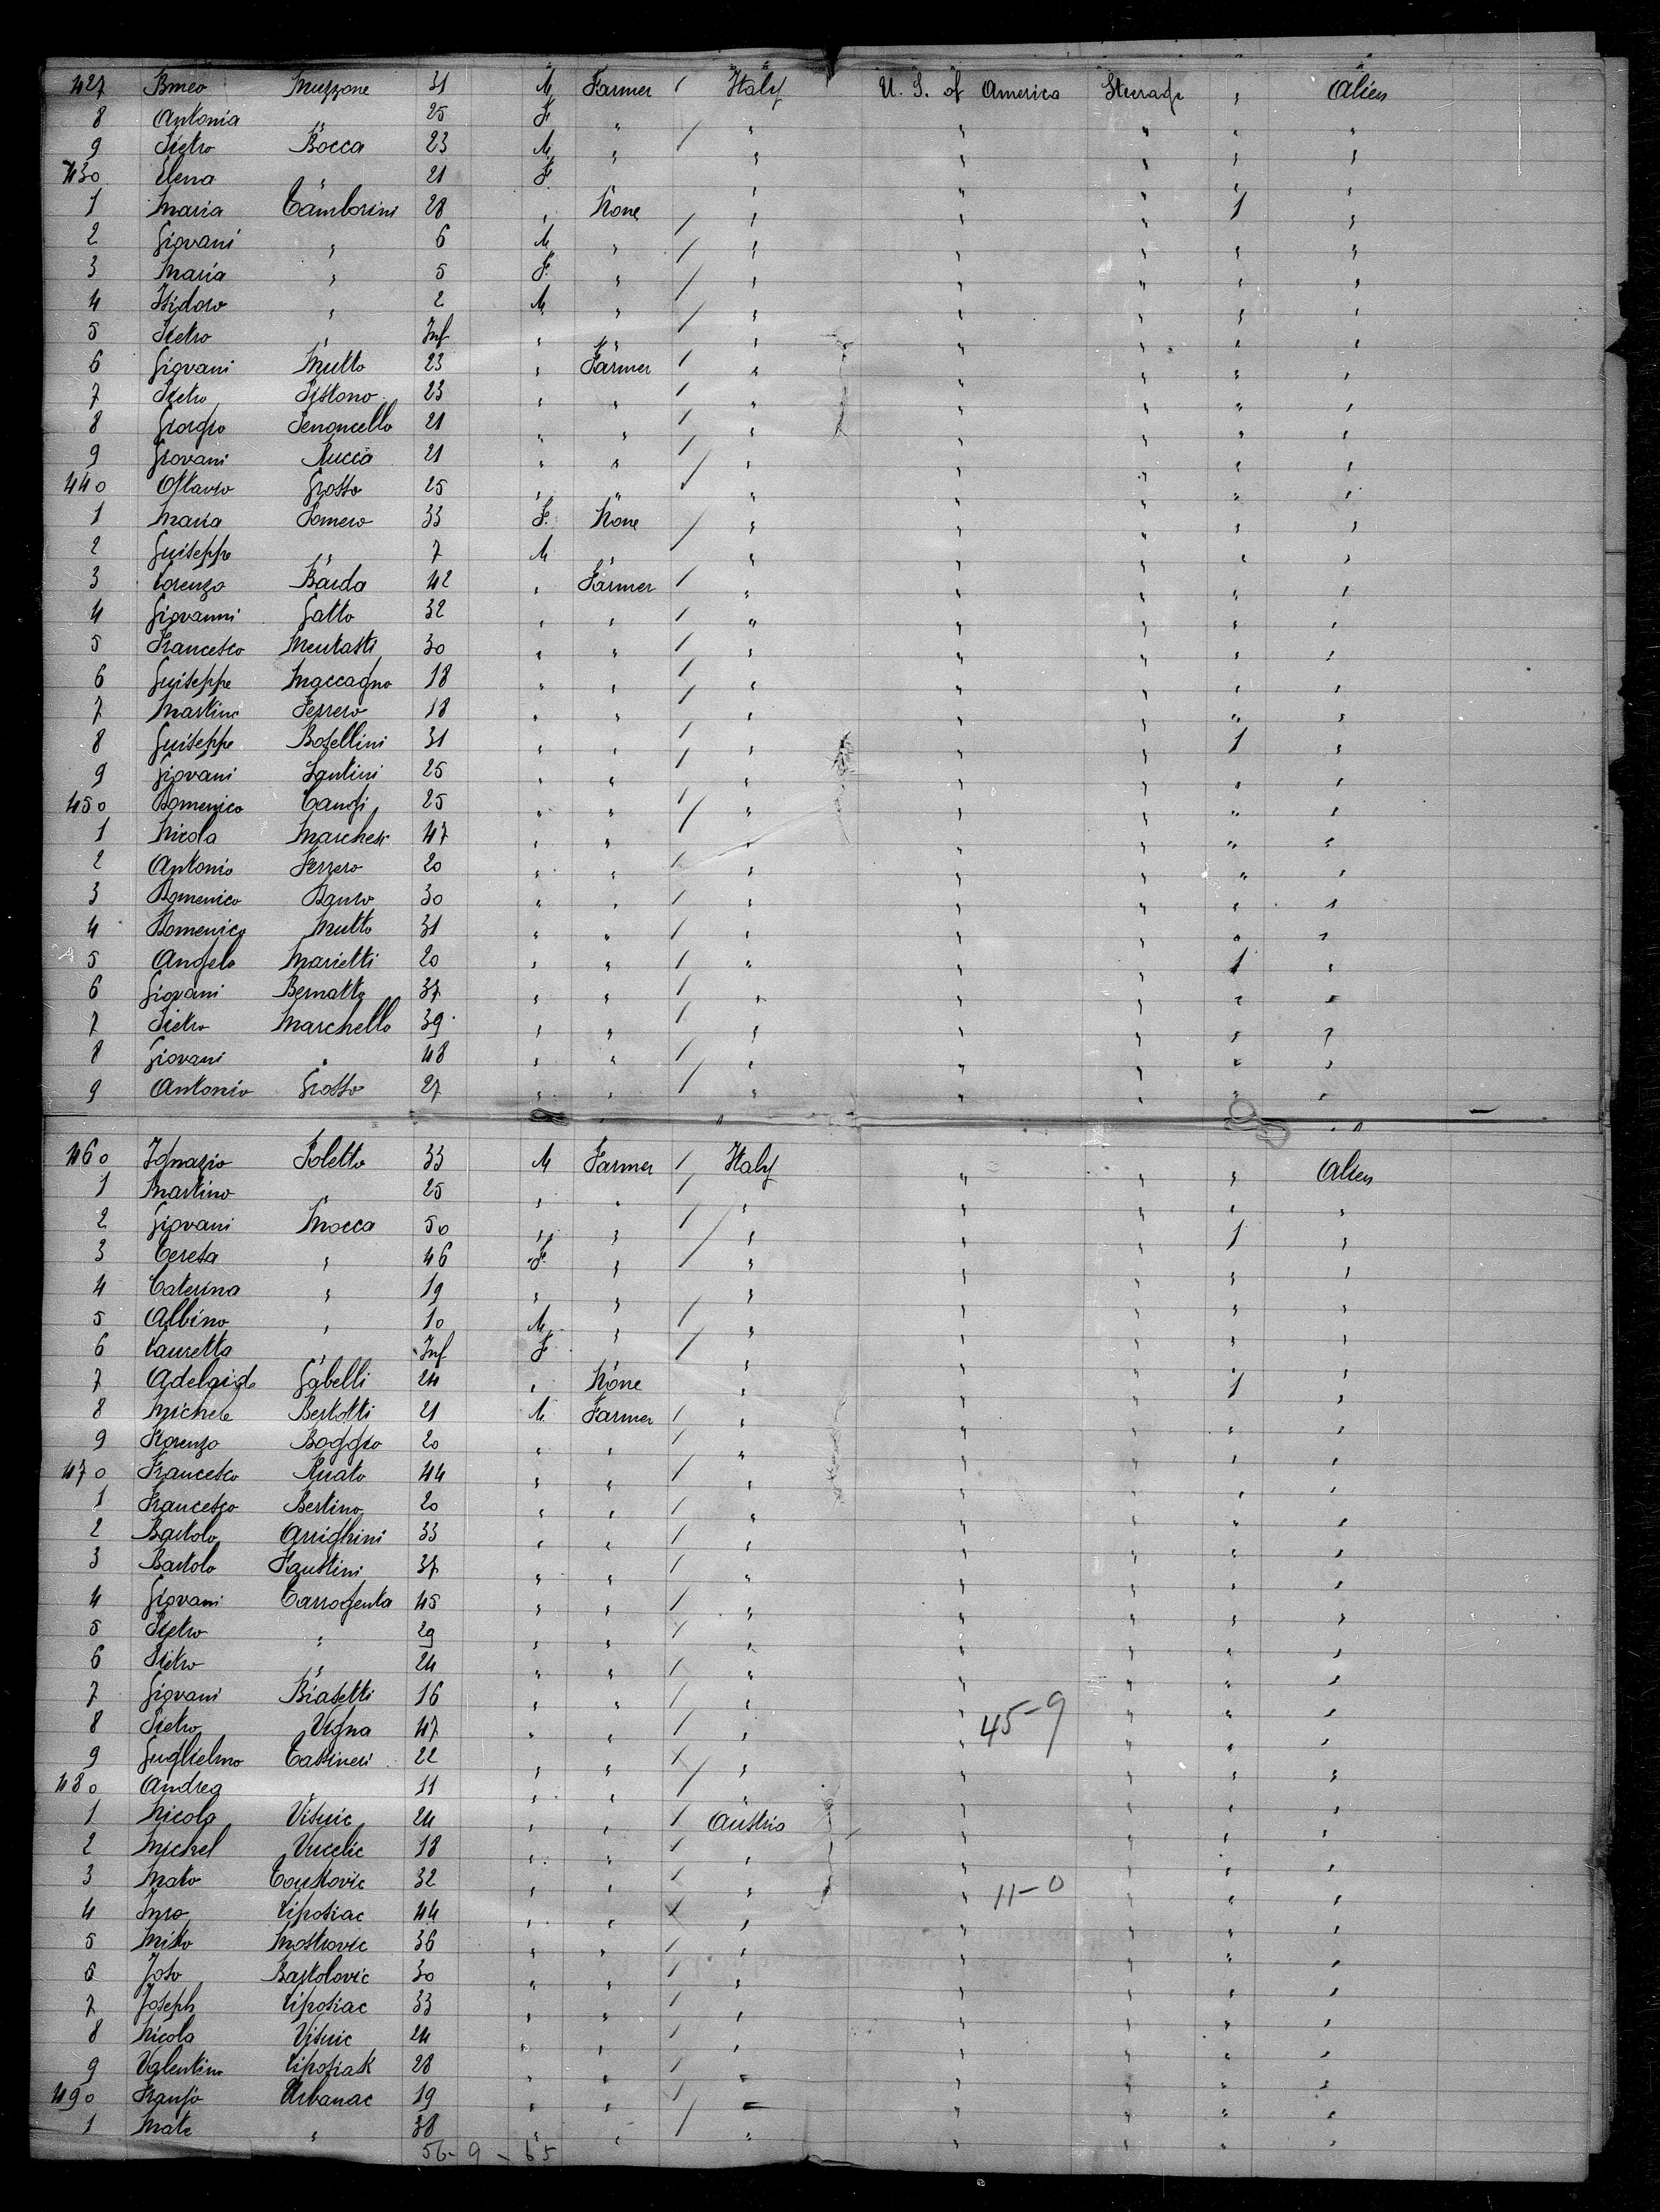 427 Bmeo Muzzone 31 M Farmer / Italy U. S. of America Steerage " Alien
8 Antonia " 25 F " / " " " " "
9 Pietro Bocca 23 M " " " " " "
430 Elena " 21 F " " " " "
1 Maria Tamborini 28 " None / " " " 1 "
2 Giovani " 6 M " / " " " " "
3 Maria " 5 F. " / " " " " "
4 Isidoro " 2 M " / " " " " "
5 Pietro " Inf " " " " " " "
6 Giovani Mutto 23 " Farmer / " " " " "
7 Pietro Pistono 23 " " / " " " " "
8 Giorgio Senoncello 21 " " / " " " " "
9 Giovani Rucca 21 " " / " " " " "
440 Ottavio Grosso 25 " " / " " " " "
1 Maria Pomero 33 F. None / " " " " "
2 Guiseppe " 7 M " " " " " "
3 Lorenzo Barda 42 " Farmer / " " " " "
4 Giovanni Gatto 32 " " / " " " " "
5 Francesco Mentasti 30 " " / " " " " "
6 Guiseppe Maccagno 18 " " / " " " " "
7 Martino Ferrero 18 " " / " " " " "
8 Guiseppe Bosellini 31 " " / " " " 1 "
9 Giovani Santini 25 " " / " " " " "
450 Domenico Cangi 25 " " / " " " " "
1 Nicola Marchesi 47 " " / " " " " "
2 Antonio Ferrero 20 " " / " " " " "
3 Domenico 30 " " / " " " " "
4 Domenico Mutto 31 " " / " " " " "
5 Angelo Marietti 20 " " / " " " 1 "
6 Giovani Bernatto 37 " " / " " " " "
7 Pietro Marchello 39 " " / " " " " "
8 Giovani " 48 " " / " " " " "
9 Antonio Grosso 27 " " / " " " " "
460 Ignazio Poletto 33 M Farmer / Italy " " " Alien
1 Martino " 25 " " / " " " " "
2 Giovani Mocca 50 " " / " " " 1 "
3 Teresa " 46 F. " / " " " " "
4 Caterina " 19 " " " " " " "
5 Albino " 10 M " / " " " " "
6 Lauretta " Inf F / " " " " "
7 Adelaide Gabelli 24 " None " " " 1 "
8 Michele Bertotti 21 M Farmer / " " " " "
9 Florenzo Boggio 20 " " / " " " " "
470 Francesco Ruato 44 " " / " " " " "
1 Francesco Bertino 20 " " / " " " " "
2 Bartolo Arrighini 33 " " / " " " " "
3 Bartolo Faustini 37 " " / " " " " "
4 Giovani Carrogenta 45 " " / " " " " "
5 Pietro " 29 " " / " " " " "
6 Pietro " 24 " " / " " " " "
7 Giovani Biasetti 16 " " / " " " " "
8 Pietro Vigna 47 " " / " 45-9 " " " "
9 Guglielmo Cassineri 22 " " / " " " " "
480 Andrea 11 " " / " " " " "
1 Nicola Visnic 24 " " / Austria " " " "
2 Michel Vucelic 18 " " / " " " " "
3 Mato Couskovic 32 " " / " 11-0 " " " "
4 Juro Liposiac 44 " " / " " " " "
5 Misko Mostrovic 36 " " / " " " " "
6 Joso Bartolovic 30 " " / " " " " "
7 Joseph Liposiac 33 " " / " " " " "
8 Nicola Visnic 24 " " / " " " " "
9 Valentino Liposiak 28 " " / " " " " "
490 Franjo Urbanac 19 " " / " " " " "
1 Mate " 38 " " / " " " " "
56-9-65